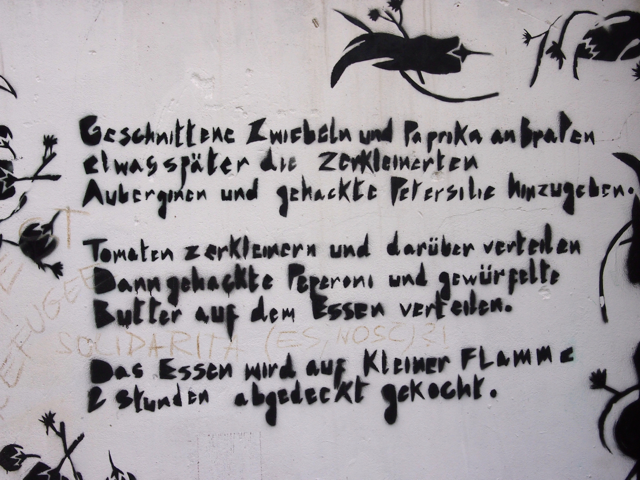 Geschnittene Zwiebeln und Paprika anbraten
etwas später die zerkleinerten
Auberginen und gehackte Petersilie hinzugeben.
Tomaten zerkleinern und darüber verteilen
Dann gehackte Peperoni und gewürfelte
Butter auf dem Essen verteilen.
SOLIDARITÀ
Das Essen wird auf kleiner Flamme
2 stunden abgedeckt gekocht.